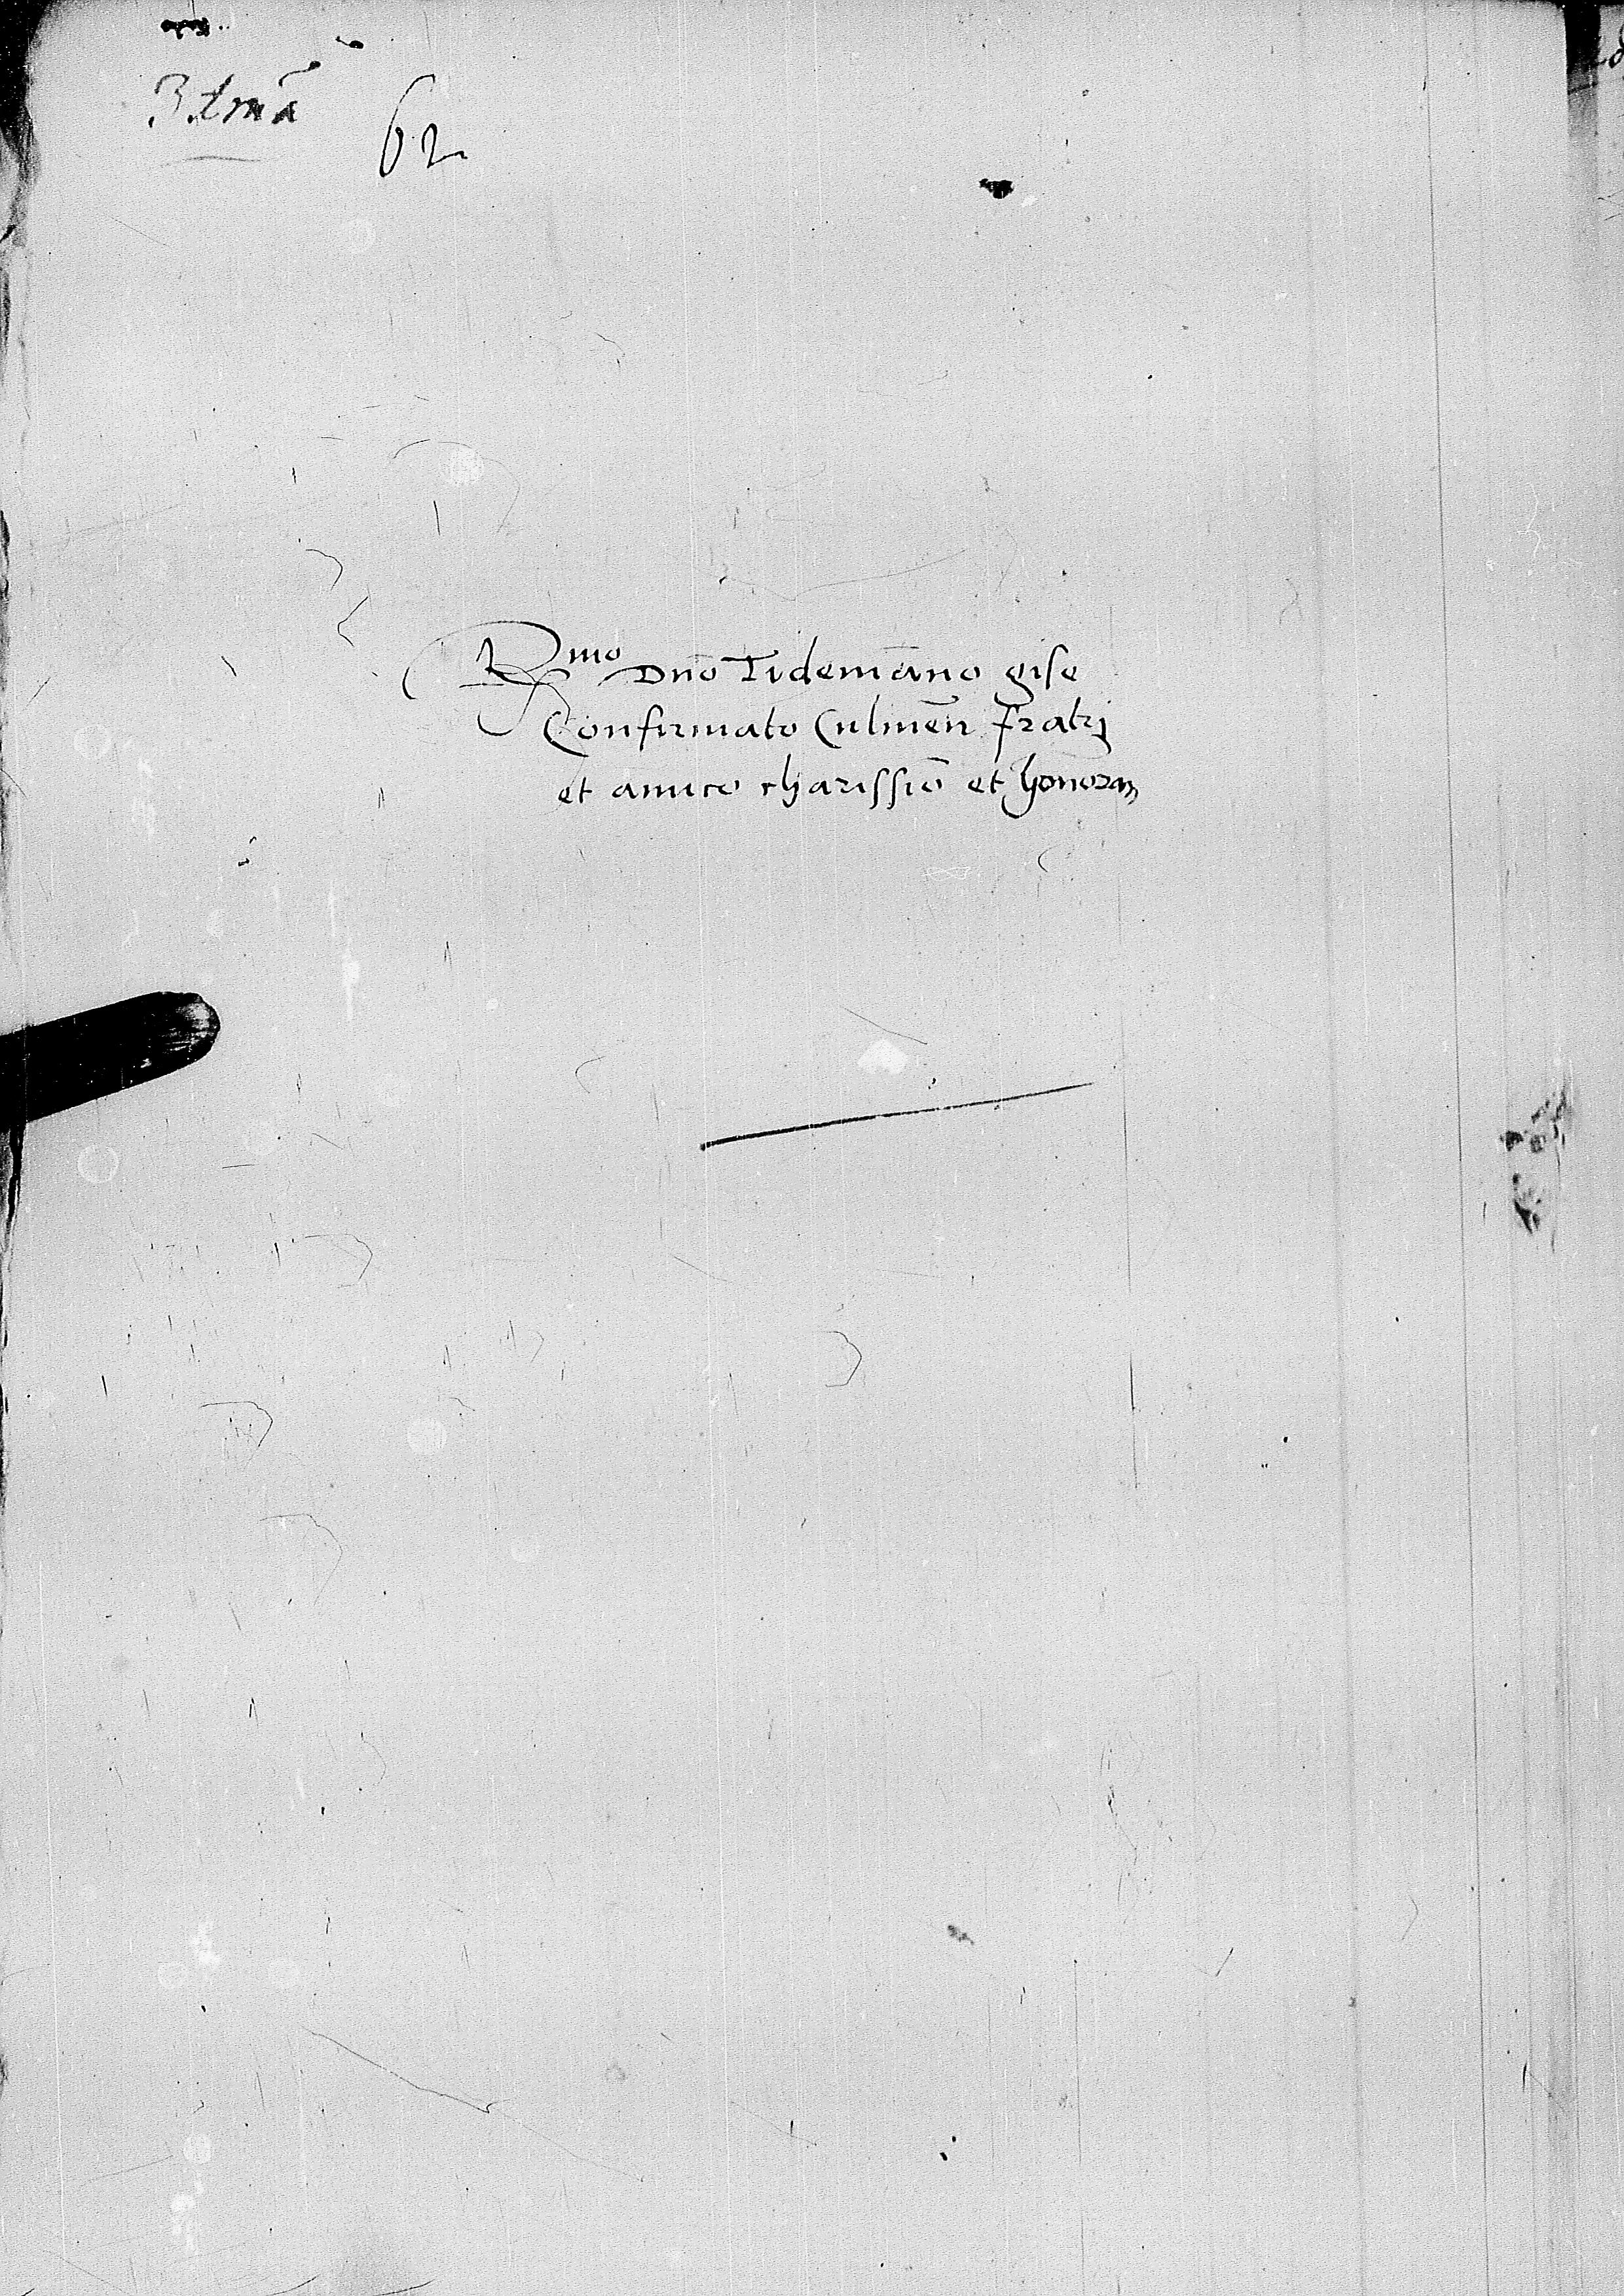 62
Rmo Dno Tidemāno gise
Confirmato Culmeñ fratrj
et amico charissio et honoran